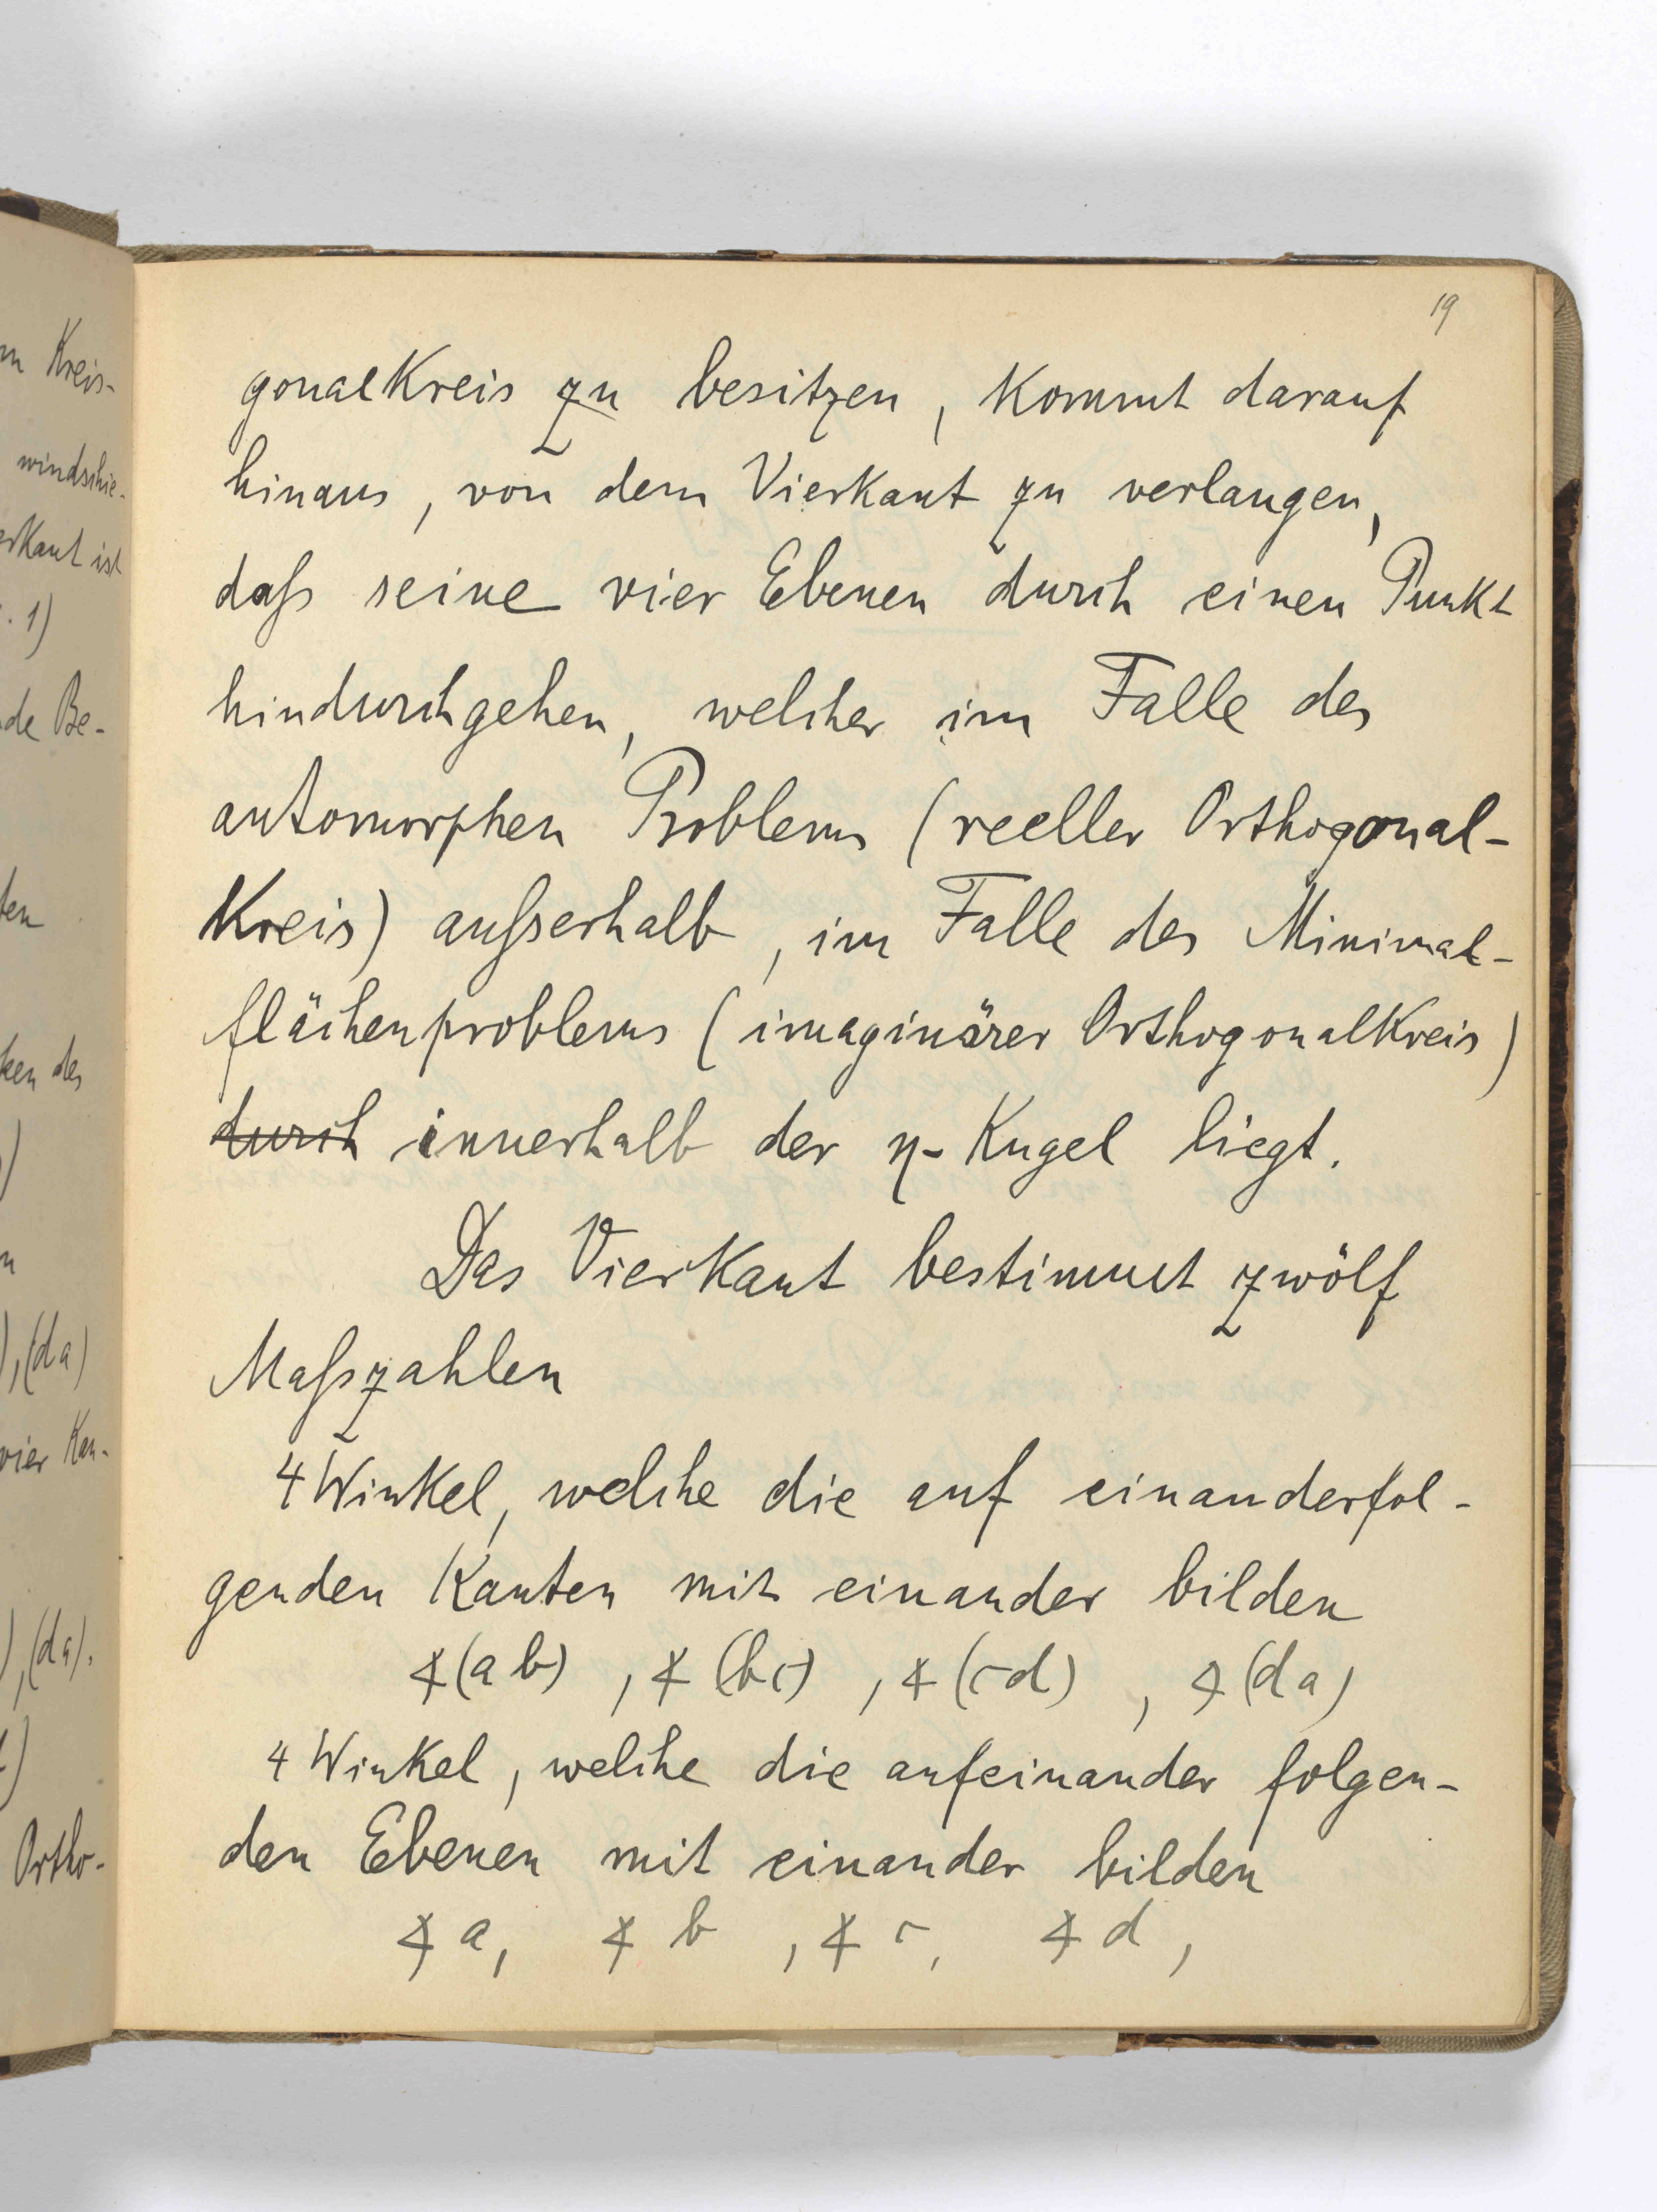 19
gonalkreis zu besitzen, kommt darauf
hinaus, von dem Vierkant zu verlangen,
daß seine vier Ebenen durch einen Punkt
hindurchgehen, welcher im Falle des
automorphen Problems (reeller Orthogonal-
kreis) außerhalb, im Falle des Minimal-
flächenproblems (imaginärer Orthogonalkreis)
durch innerhalb der η-Kugel liegt.
Das Vierkant bestimmt zwölf
Maßzahlen
4 Winkel, welche die auf einanderfol-
genden Kanten mit einander bilden
∢(ab), ∢(bc), ∢(cd), ∢(da)
4 Winkel, welche die aufeinander folgen-
den Ebenen mit einander bilden
∢a, ∢b, ∢c, ∢d,
Kreis-
windschie-
ist
1)
de Be-
des
,(da)
vier Kan-
,(da),
Ortho-